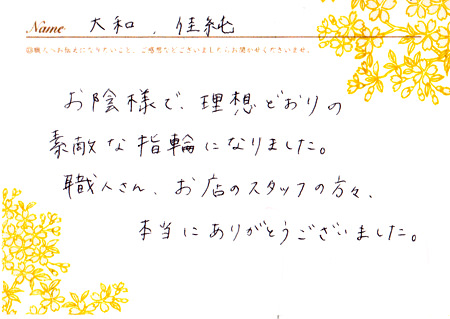 Name 大和、佳純
◎職人へお伝えになりたいこと、ご感想などございましたらお聞かせくださいませ。
お陰様で、理想どおりの
素敵な指輪になりました。
職人さん、お店のスタッフの方々、
本当にありがとうございました。